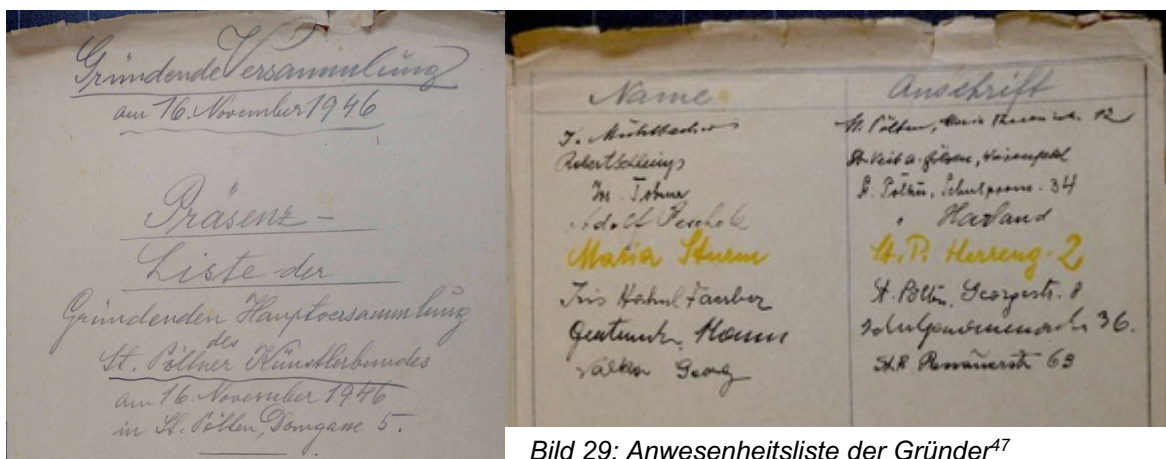 Gründende Versammlung
am 16. November 1946
Präsenz-
Liste der
Gründenden Hauptversammlung
des
St. Pöltner Künstlerbundes
am 16. November 1946
in St. Pölten, Domgasse 5.
Name Anschrift
J. St. Pölten, 12
Robert St. Veit a. Gölsen,
St. Pölten, 34
Adolf Peschek " Harland
Maria Sturm St. P. Herreng. 2
Iris Hahnl Faerber St. Pölten, Georgestr. 8
36.
Georg St. P. 63
Bild 29: Anwesenheitsliste der Gründer47